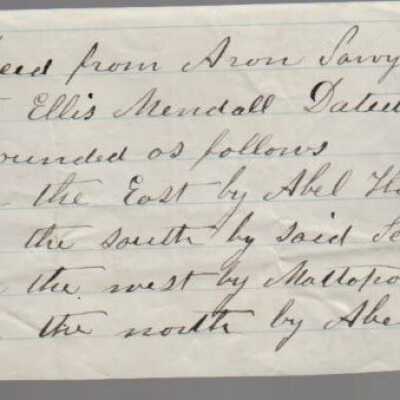 eed from Aron Sawy
Ellis Mendall Dated
ounded as follows
the East by Abel H
the south by said S
the west by Mattapo
the north by Abe